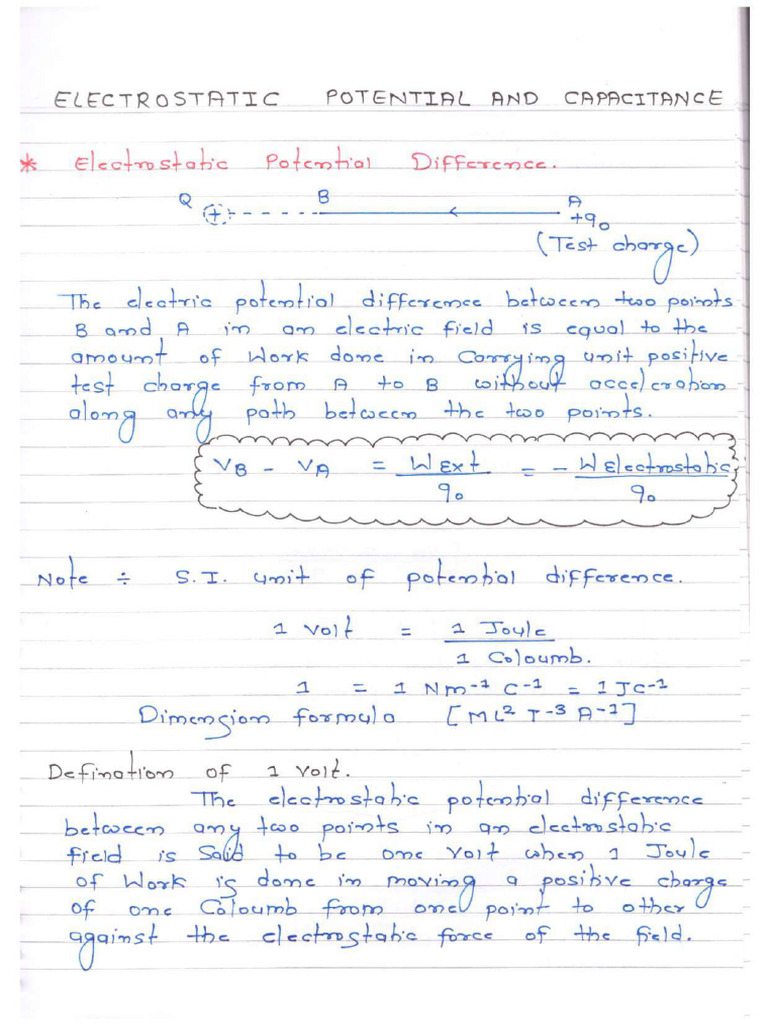 ELECTROSTATIC POTENTIAL AND CAPACITANCE
* Electrostatic Potential Difference.
Q B A
+ +q₀
(Test charge)
The electric potential difference between two points
B and A in an electric field is equal to the
amount of Work done in Carrying unit positive
test charge from A to B without acceleration
along any path between the two points.
VB - VA = WExt / q₀ = - WElectrostatic / q₀
Note ÷ S.I. unit of potential difference.
1 Volt = 1 Joule / 1 Coloumb.
1 = 1 Nm⁻¹ C⁻¹ = 1 JC⁻¹
Dimension formula [ML² T⁻³ A⁻¹]
Defination of 1 Volt.
The electrostatic potential difference
between any two points in an electrostatic
field is Said to be one Volt when 1 Joule
of Work is done in moving a positive charge
of one Coloumb from one point to other
against the electrostatic force of the field.